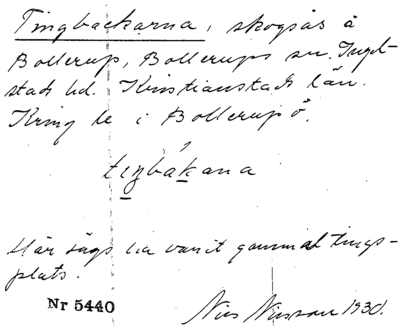 Tingbackarna, skogsås å
Bollerup, Bollerups sn. Ingel-
stads hd. Kristianstads län.
Kring le i Bollerup ö.
tiŋbákana
Här sägs ha varit gammal tings-
plats.
Nr 5440
Nils Nilsson 1930.